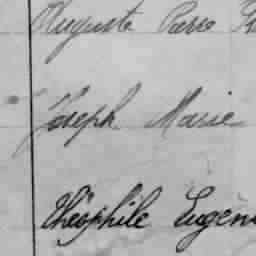 Auguste Pierre
Joseph Marie
Théophile Eugène